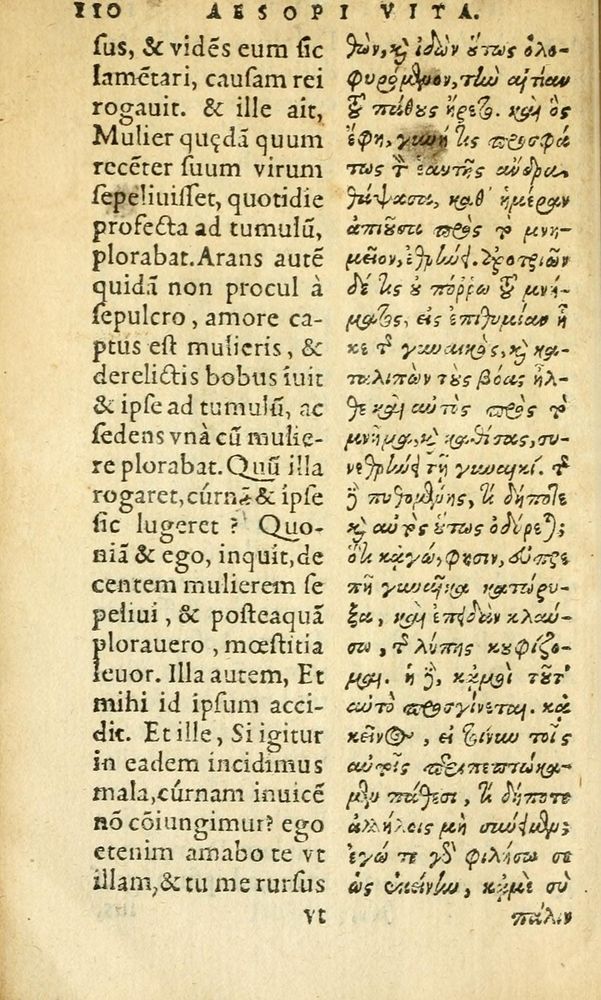 110 AESOPI VITA.
sus, & vidēs eum sic
lamētari, causam rei
rogauit. & ille ait,
Mulier quędã quum
recēter suum virum
sepeliuisset, quotidie
profecta ad tumulũ,
plorabat. Arans autē
quidã non procul à
sepulcro, amore ca-
ptus est mulieris, &
derelictis bobus iuit
& ipse ad tumulũ, ac
sedens vnà cũ mulie-
re plorabat. Quũ illa
rogaret, cúrnã & ipse
sic lugeret? Quo-
niã & ego, inquit, de
centem mulierem se
peliui, & posteaquã
plorauero, mœstitia
leuor. Illa autem, Et
mihi id ipsum acci-
dit. Et ille, Si igitur
in eadem incidimus
mala, cúrnam inuicē
nõ cõiungimur? ego
etenim amabo te vt
illam, & tu me rursus
vt
θὼν, καὶ ἰδὼν ὅτως ὀλο-
φυρόμενον, τὴν αἰτίαν
τοῦ πάθους ἤρετο. καὶ ὃς
ἔφη, γυνή τις προσφά
τως τὸν ἑαυτῆς ἄνδρα
θάψασα, καθ' ἡμέραν
ἀπιοῦσα πρὸς τὸ μνη-
μεῖον, ἐθρήνει. ἀροτριῶν
δέ τις οὐ πόρρω τοῦ μνή-
ματος, εἰς ἐπιθυμίαν ἧ
κε τῆς γυναικὸς, καὶ κα-
ταλιπὼν τοὺς βόας ἦλ-
θε καὶ αὐτὸς πρὸς τὸ
μνῆμα, καὶ καθίσας, συ-
νεθρήνει τῇ γυναικί. τῆς
δὲ πυθομένης, τί δήποτε
καὶ αὐτὸς οὕτως ὀδύρεται;
ὅτι κἀγὼ, φησιν, εὐπρε
πῆ γυναῖκα κατώρυ-
ξα, καὶ ἐπειδὰν κλαύ-
σω, τῆς λύπης κουφίζο-
μαι. ἡ δὲ, κἀμοὶ τοῦτ'
αὐτὸ προσγίνεται. κἀ
κεῖνος, εἰ τοίνυν τοῖς
αὐτοῖς περιπεπτώκα-
μεν πάθεσι, τί δήποτε
ἀλλήλοις μὴ σύνιμεν;
ἐγώ τε γὰρ φιλήσω σε
ὡς ἐκείνην, κἀμὲ σὺ
πάλιν